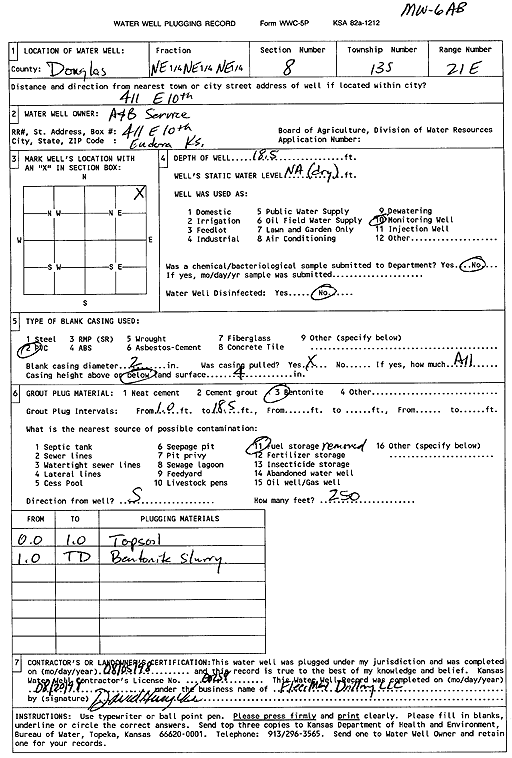 MW-6AB
WATER WELL PLUGGING RECORD Form WWC-5P KSA 82a-1212
1 LOCATION OF WATER WELL: Fraction Section Number Township Number Range Number
County: Douglas NE 1/4 NE 1/4 NE 1/4 8 13S 21E
Distance and direction from nearest town or city street address of well if located within city?
411 E 10th
2 WATER WELL OWNER: A+B Service
RR#, St. Address, Box #: 411 E 10th Board of Agriculture, Division of Water Resources
City, State, ZIP Code : Eudora Ks. Application Number:
3 MARK WELL'S LOCATION WITH AN "X" IN SECTION BOX:
N
X
N W N E
W E
S W S E
S
4 DEPTH OF WELL.....18.5.....ft.
WELL'S STATIC WATER LEVEL NA (dry) ft.
WELL WAS USED AS:
1 Domestic 5 Public Water Supply 9 Dewatering
2 Irrigation 6 Oil Field Water Supply 10 Monitoring Well
3 Feedlot 7 Lawn and Garden Only 11 Injection Well
4 Industrial 8 Air Conditioning 12 Other..................
Was a chemical/bacteriological sample submitted to Department? Yes...No...
If yes, mo/day/yr sample was submitted....................
Water Well Disinfected: Yes.....No.....
5 TYPE OF BLANK CASING USED:
1 Steel 3 RMP (SR) 5 Wrought 7 Fiberglass 9 Other (specify below)
2 PVC 4 ABS 6 Asbestos-Cement 8 Concrete Tile ....................
Blank casing diameter...2...in. Was casing pulled? Yes.X.. No..... If yes, how much All
Casing height above or below land surface.....4.......in.
6 GROUT PLUG MATERIAL: 1 Neat cement 2 Cement grout 3 Bentonite 4 Other..................
Grout Plug Intervals: From 1.0 ft. to 18.5 ft., From..... ft. to .....ft., From..... to.....ft.
What is the nearest source of possible contamination:
1 Septic tank 6 Seepage pit 11 Fuel storage removed 16 Other (specify below)
2 Sewer lines 7 Pit privy 12 Fertilizer storage
3 Watertight sewer lines 8 Sewage lagoon 13 Insecticide storage
4 Lateral lines 9 Feedyard 14 Abandoned water well
5 Cess Pool 10 Livestock pens 15 Oil well/Gas well
Direction from well? ...S...... How many feet? ...250.....
FROM TO PLUGGING MATERIALS
0.0 1.0 Topsoil
1.0 TD Bentonite Slurry
7 CONTRACTOR'S OR LANDOWNER'S CERTIFICATION: This water well was plugged under my jurisdiction and was completed
on (mo/day/year) 08/05/98 and this record is true to the best of my knowledge and belief. Kansas
Water Well Contractor's License No. This Water Well Record was completed on (mo/day/year)
under the business name of Drilling LLC
by (signature)
INSTRUCTIONS: Use typewriter or ball point pen. Please press firmly and print clearly. Please fill in blanks,
underline or circle the correct answers. Send top three copies to Kansas Department of Health and Environment,
Bureau of Water, Topeka, Kansas 66620-0001. Telephone: 913/296-3565. Send one to Water Well Owner and retain
one for your records.